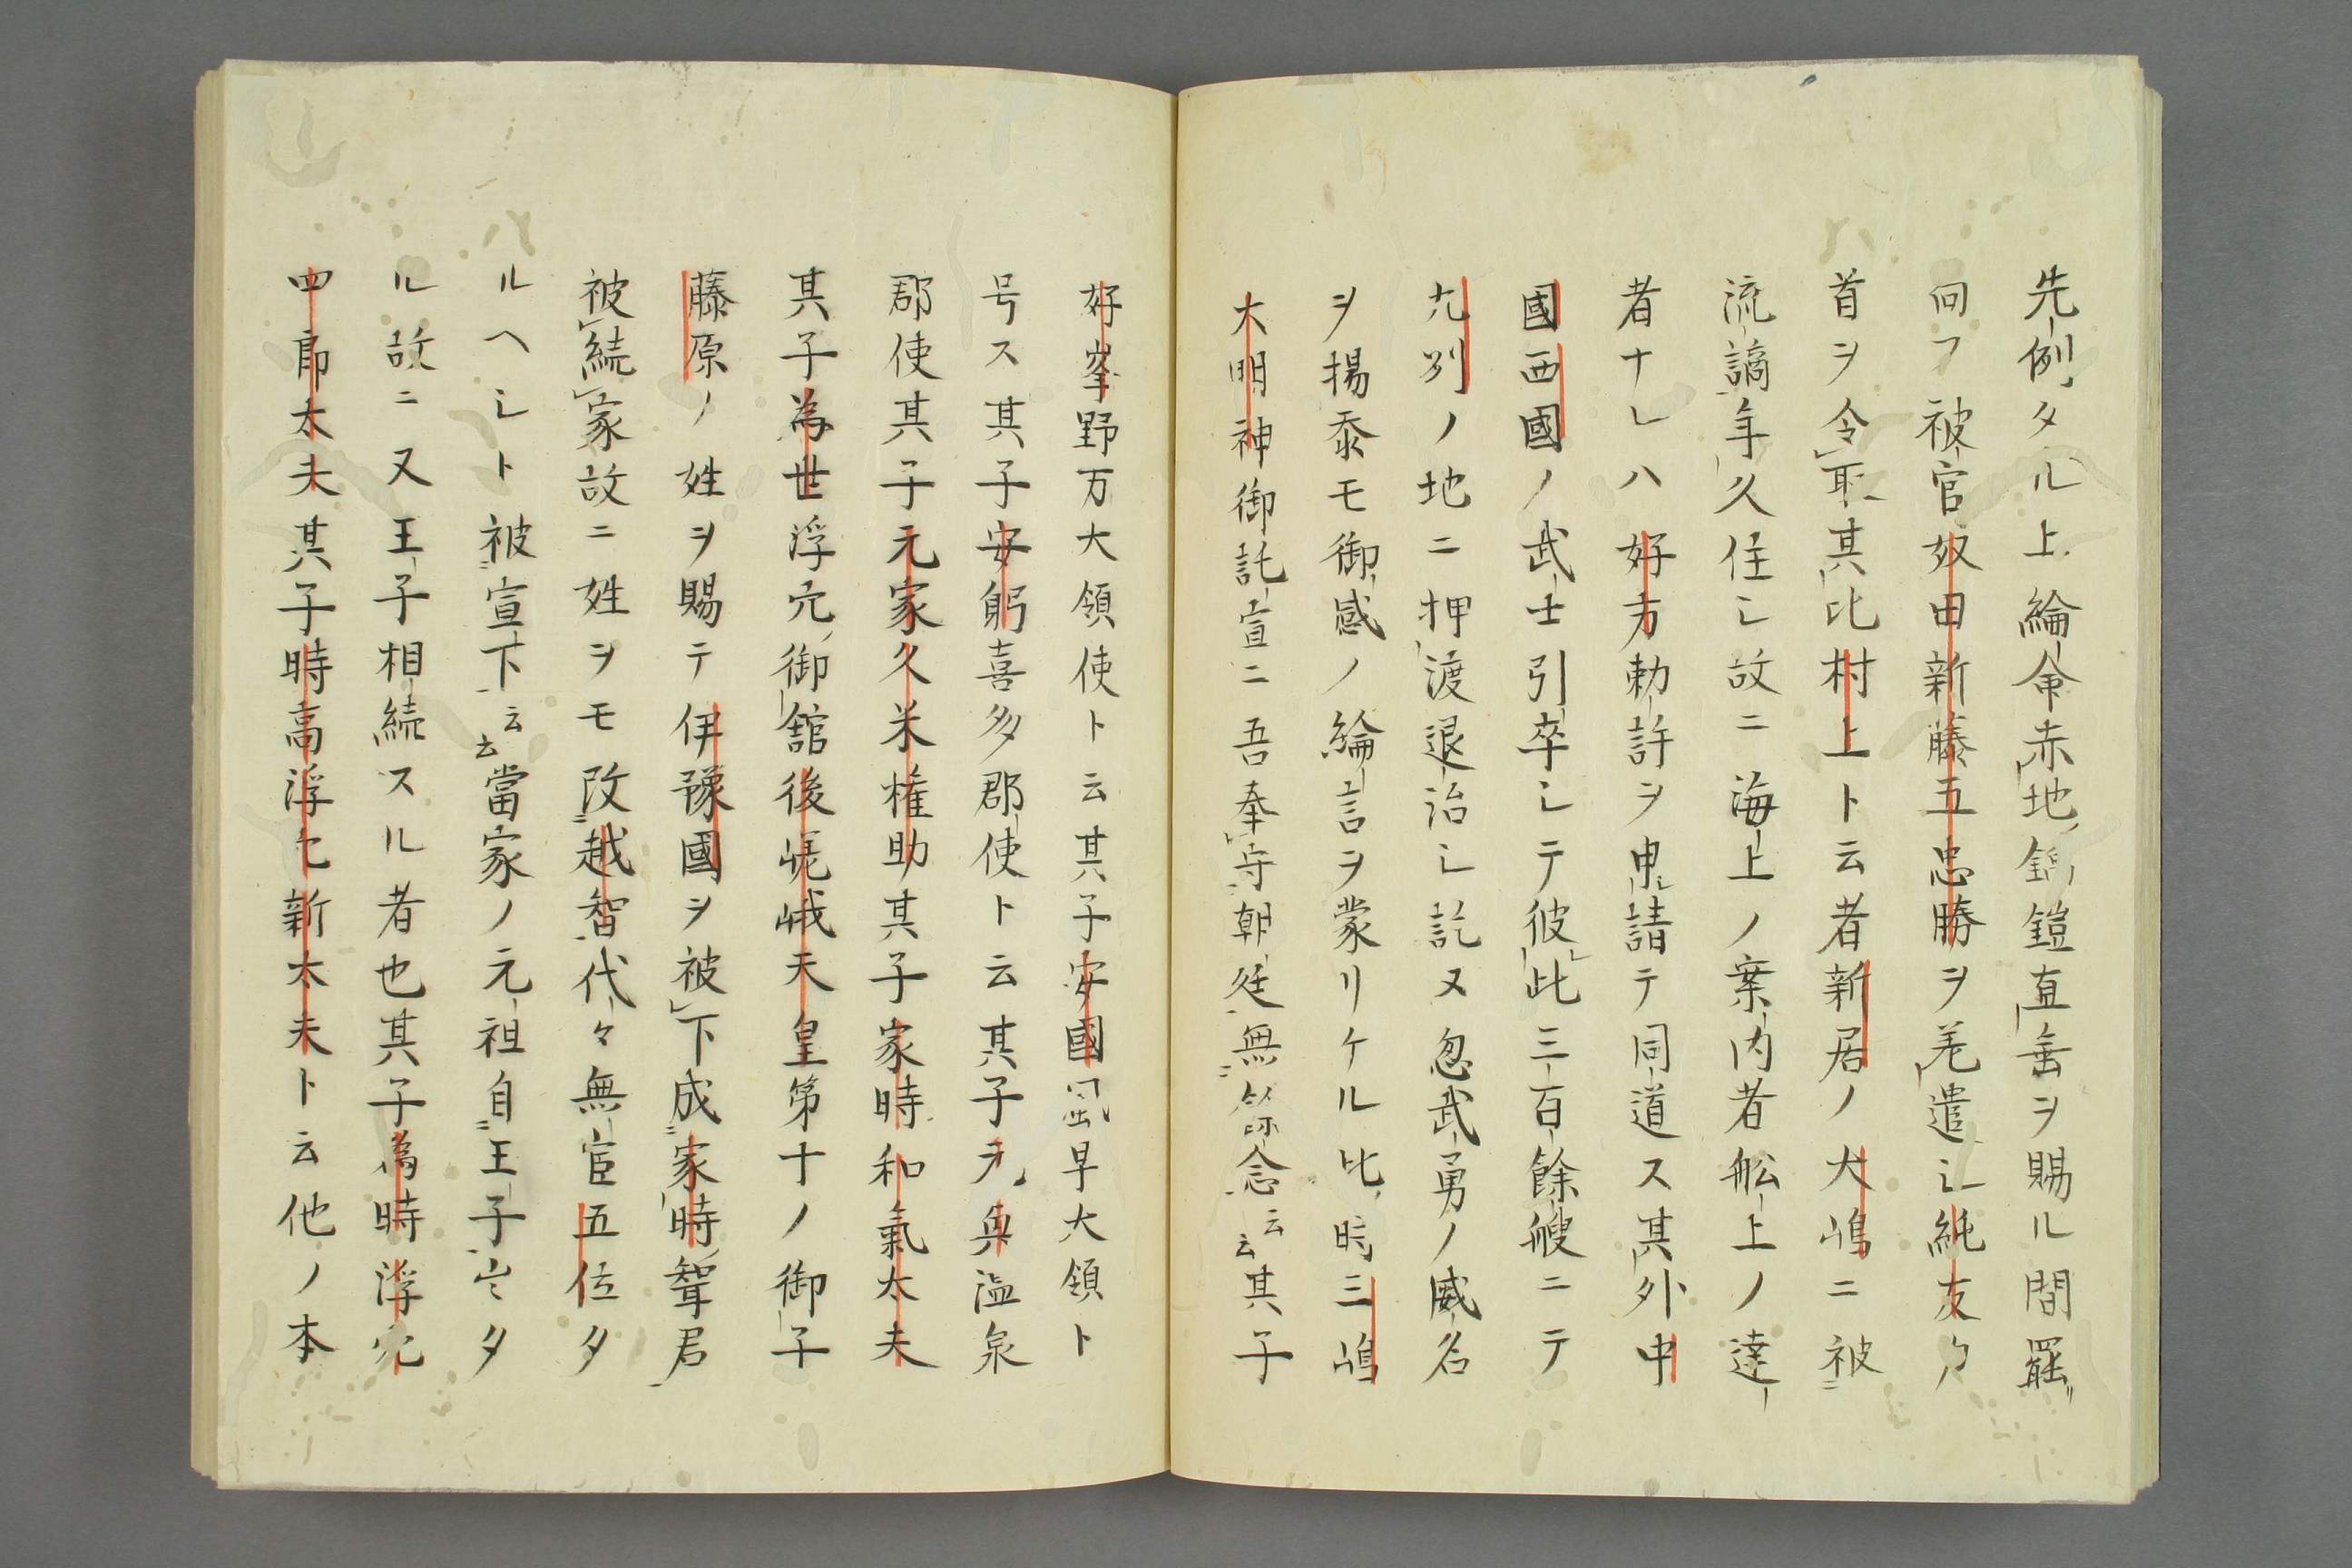 先例タル上綸命赤地錦鎧直垂ヲ賜ル間罷
向フ被官奴田新藤五忠勝ヲ差遣シ純友々
首ヲ令取其比村上ト云者新居ノ大嶋ニ被
流謫年久住シ故ニ海上ノ案内者舩上ノ達
者ナレハ好方勅許ヲ申請テ同道ス其外中
國西國ノ武士引卒シテ彼此三百餘艘ニテ
九州ノ地ニ押渡退治シ訖又忽武勇ノ威名
ヲ揚忝モ御感ノ綸言ヲ蒙リケル比時三嶋
大明神御託宣ニ吾奉守朝廷無餘念云云其子
好峯野万大領使ト云其子安國風早大領ト
号ス其子安躬喜多郡使ト云其子元興温泉
郡使其子元家久米権助其子家時和氣大夫
其子為世浮穴御舘後嵯峨天皇第十ノ御子
藤原ノ姓ヲ賜テ伊豫國ヲ被下成家時聟君
被続家故ニ姓ヲモ改越智代々無宦五位タ
ルヘシト被宣下云云當家ノ元祖自王子定タ
ル故ニ又王子相続スル者也其子為時浮穴
四郎大夫其子時高浮七新大夫ト云他ノ本